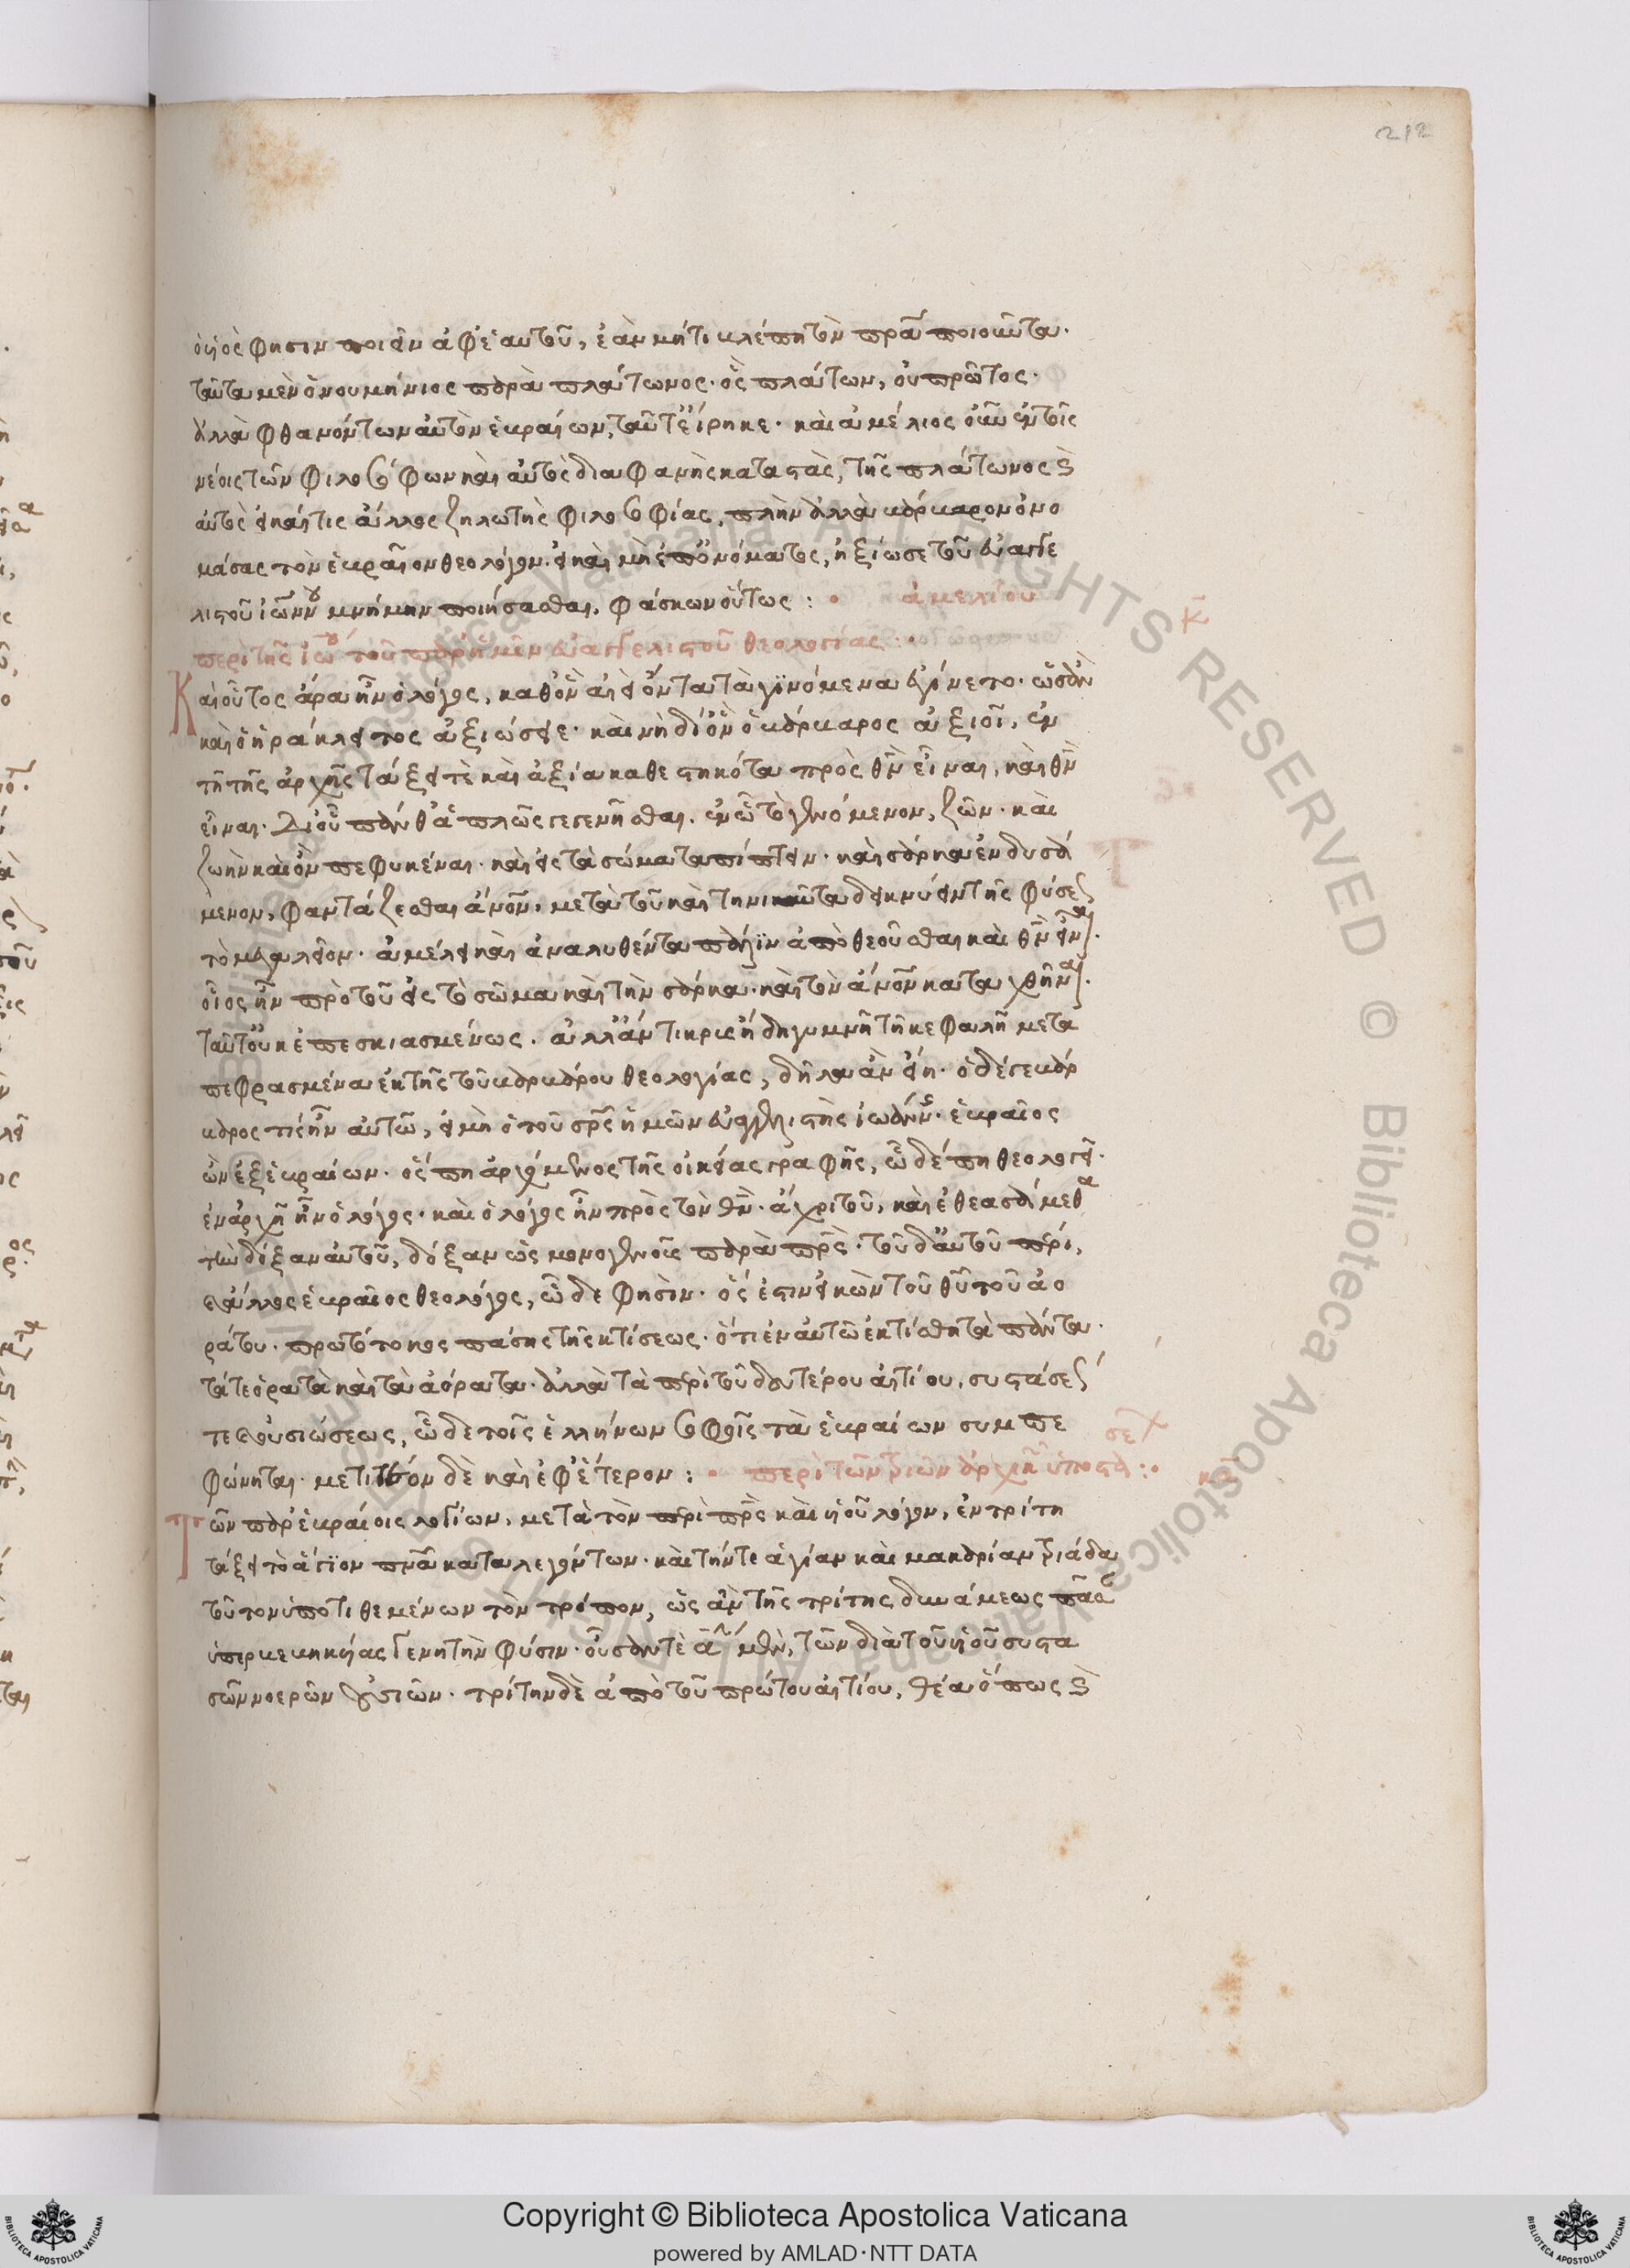 212
ὁ υἱὸς φησιν ποιεῖν ἀφ' ἑαυτοῦ, ἐὰν μή τι βλέπῃ τὸν πρα ποιοῦντα·
ταῦτα μὲν ὁ νουμήνιος παρὰ πλάτωνος· ὃς πλάτων, οὐ πρῶτος·
ἀλλὰ φθανόντων αὐτὸν ἑβραίων, ταῦτ' εἴρηκε· καὶ ἀμέλιος οὖν ἐν τοῖς
νέοις τῶν φιλοσόφων καὶ αὐτὸς διαφανὴς καταστὰς, τῆς πλάτωνος
αὐτὸς εἰ καί τις ἄλλος ζηλωτὴς φιλοσοφίας, πλὴν ἀλλὰ βάρβαρον ὀνο
μάσας τὸν ἑβραῖον θεολόγον. εἰ καὶ μὴ ἐπ' ὀνόματος, ἠξίωσε τοῦ εὐαγγε
λιστοῦ ἰωάνν μνήμην ποιήσασθαι. φάσκων οὕτως : ἀμελίου
περὶ τῆς ἰω τοῦ παρ' ἡμῖν εὐαγγελιστοῦ θεολογίας : κ
Καὶ οὗτος ἄρα ἦν ὁ λόγος, καθ' ὃν ἀεὶ ὄντα τὰ γινόμενα ἐγίνετο· ὡς ἂν
καὶ ὁ ἡράκλειτος ἀξιώσειε· καὶ νὴ δί' ὃν ὁ βάρβαρος ἀξιοῖ, ἐν
τῇ τῆς ἀρχῆς τάξει τὲ καὶ ἀξία καθεστηκότα πρὸς θν εἶναι, καὶ θν
εἶναι. δι' οὗ πάνθ' ἁπλῶς γεγενῆσθαι. ἐν ᾧ τὸ γενόμενον, ζῶν· καὶ
ζωὴν καὶ ὂν πεφυκέναι· καὶ εἰς τὰ σώματα πίπτειν· καὶ σάρκα ἐνδυσά
μενον, φαντάζεσθαι ἄνον. μετὰ τοῦ καὶ τηνικαῦτα δεικνύειν τῆς φύσε
τὸ μεγαλεῖον· ἀμέλει καὶ ἀναλυθέντα πάλιν ἀποθεοῦσθαι καὶ θν εἶν.
οἷος ἦν πρὸ τοῦ εἰς τὸ σῶμα καὶ τὴν σάρκα· καὶ τὸν ἄνον καταχθῆν.
ταῦτ' οὐκ ἐπεσκιασμένως. ἀλλ' ἄντικρις ἤδη γυμνῇ τῇ κεφαλῇ μετα
πεφρασμένα ἐκ τῆς τοῦ βαρβάρου θεολογίας, δῆλα ἂν εἴη· ὁ δέ γε βάρ
βαρος τίς ἦν αὐτῷ, εἰ μὴ ὁ τοῦ σρς ἡμῶν εὐαγγελιστὴς ἰωάνν. ἑβραῖος
ὢν ἐξ ἑβραίων. ὅς πη ἀρχόμενος τῆς οἰκείας γραφῆς, ὧδέ πη θεολογεῖ·
ἐν ἀρχῇ ἦν ὁ λόγος· καὶ ὁ λόγος ἦν πρὸς τὸν θν· ἄχρι τοῦ, καὶ ἐθεασάμεθα
τὴν δόξαν αὐτοῦ, δόξαν ὡς μονογενοῦς παρὰ πρς· τοῦ δ' αὐτοῦ πέρι,
ἄλλος ἑβραῖος θεολόγος, ὧδε φησίν· ὅς ἐστιν εἰκὼν τοῦ θυ τοῦ ἀο
ράτου. πρωτότοκος πάσης τῆς κτίσεως· ὅτι ἐν αὐτῷ ἐκτίσθη τὰ πάντα·
τά τε ὁρατὰ καὶ τὰ ἀόρατα· ἀλλὰ τὰ περὶ τοῦ δευτέρου αἰτίου, συστάσε
τε οὐσιώσεως, ὧδε τοῖς ἑλλήνων σοφοῖς τὰ ἑβραίων συμπε
φώνηται. μετιτέον δὲ καὶ ἐφ' ἕτερον : περὶ τῶν τριῶν ἀρχικ ὑποστά :
Τῶν παρ' ἑβραίοις λογίων, μετὰ τὸν περὶ πρς καὶ υἱοῦ λόγον, ἐν τρίτῃ
τάξει τὸ ἅγιον πνα καταλεγόντων· καὶ τήν τε ἁγίαν καὶ μακαρίαν τριάδα
τοῦτον ὑποτιθεμένων τὸν τρόπον, ὡς ἂν τῆς τρίτης δυνάμεως πᾶσ
ὑπερβεβηκυίας γενητὴν φύσιν· τῶν διὰ τοῦ υἱοῦ συστα
σῶν νοερῶν οὐσιῶν. τρίτην δὲ ἀπὸ τοῦ πρώτου αἰτίου, θέα ὅπως
Copyright © Biblioteca Apostolica Vaticana
powered by AMLAD·NTT DATA